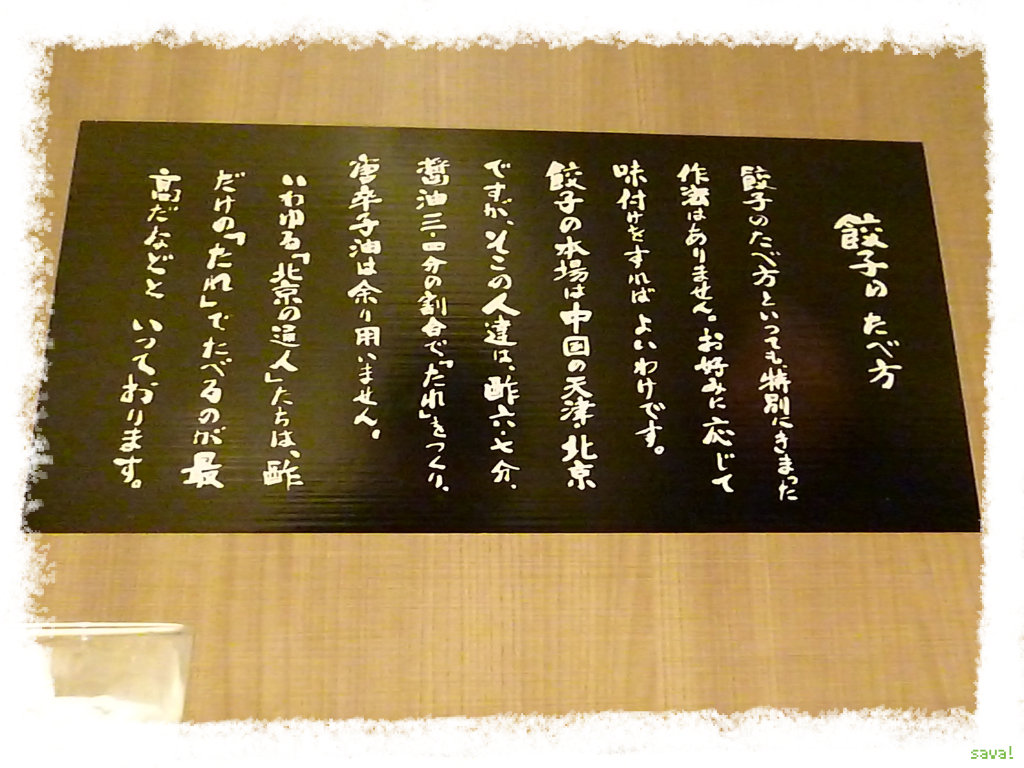 餃子のたべ方
餃子のたべ方といっても特別にきまった
作法はありません。お好みに応じて
味付けをすればよいわけです。
餃子の本場は中国の天津・北京
ですが、そこの人達は、酢六・七分、
醤油三・四分の割合で「たれ」をつくり、
唐辛子油は余り用いません。
いわゆる「北京の通人」たちは、酢
だけの「たれ」でたべるのが最
高だなどと いっております。
sava!